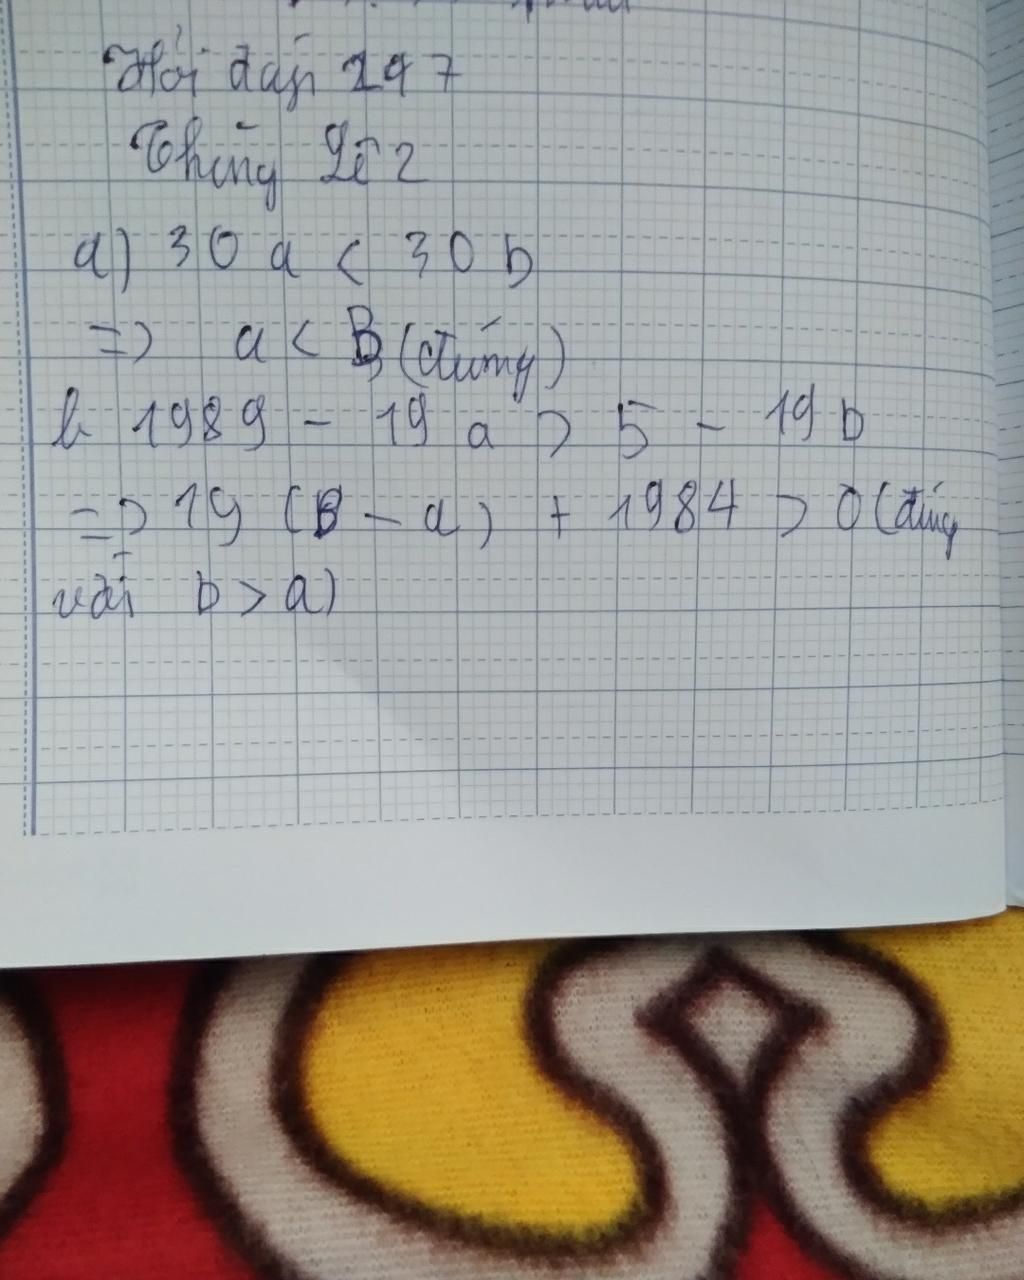 Hỏi đáp 247
a) 30 a < 30 b
=> a < B (đúng)
b 1989 - 19 a > 5 - 19 b
=> 19 (B - a) + 1984 > 0 (đúng
với b > a)